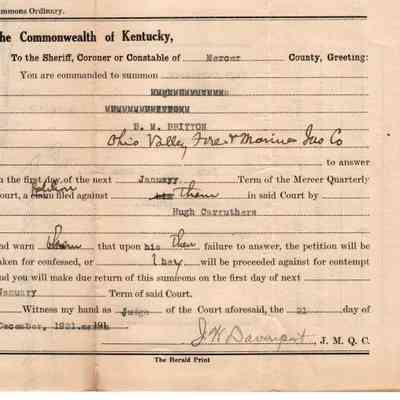 mmons Ordinary.
he Commonwealth of Kentucky,
To the Sheriff, Coroner or Constable of Mercer County, Greeting:
You are commanded to summon
B. M. BRITTON
Ohio Valley Fire & Marine Ins Co
to answer
n the first day of the next January Term of the Mercer Quarterly
ourt, a claim Petition filed against his Them in said Court by
Hugh Carruthers
nd warn them that upon his Their failure to answer, the petition will be
aken for confessed, or they will be proceeded against for contempt
nd you will make due return of this summons on the first day of next
January Term of said Court.
Witness my hand as Judge of the Court aforesaid, the 21 day of
December, 1921. 191
J. W. Davenport, J. M. Q. C.
The Herald Print